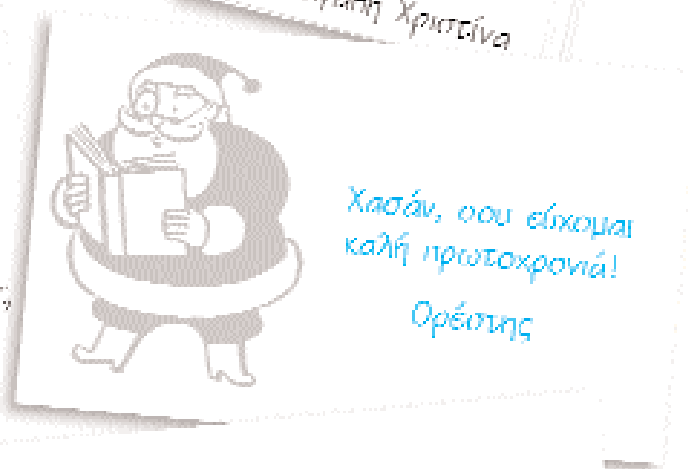 Χριστίνα
Χασάν, σου εύχομαι
καλή πρωτοχρονιά!
Ορέστης